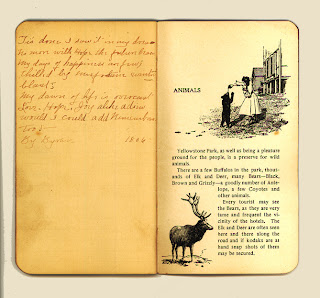 Tis done I saw it in my dreams
no more with Hope the future beams
my days of happiness are few
Chilled by misfortunes wintry
blasts
My dawn of life is overcast
Love Hope & Joy alike adieu
would I could add Remembrance
Too!
By Byron 1806
ANIMALS
Yellowstone Park, as well as being a pleasure
ground for the people, is a preserve for wild
animals.
There are a few Buffalos in the park, thous-
ands of Elk and Deer, many Bears—Black,
Brown and Grizzly—a goodly number of Ante-
lope, a few Coyotes and
other animals.
Every tourist may see
the Bears, as they are very
tame and frequent the vi-
cinity of the hotels. The
Elk and Deer are often seen
here and there along the
road and if kodaks are at
hand snap shots of them
may be secured.